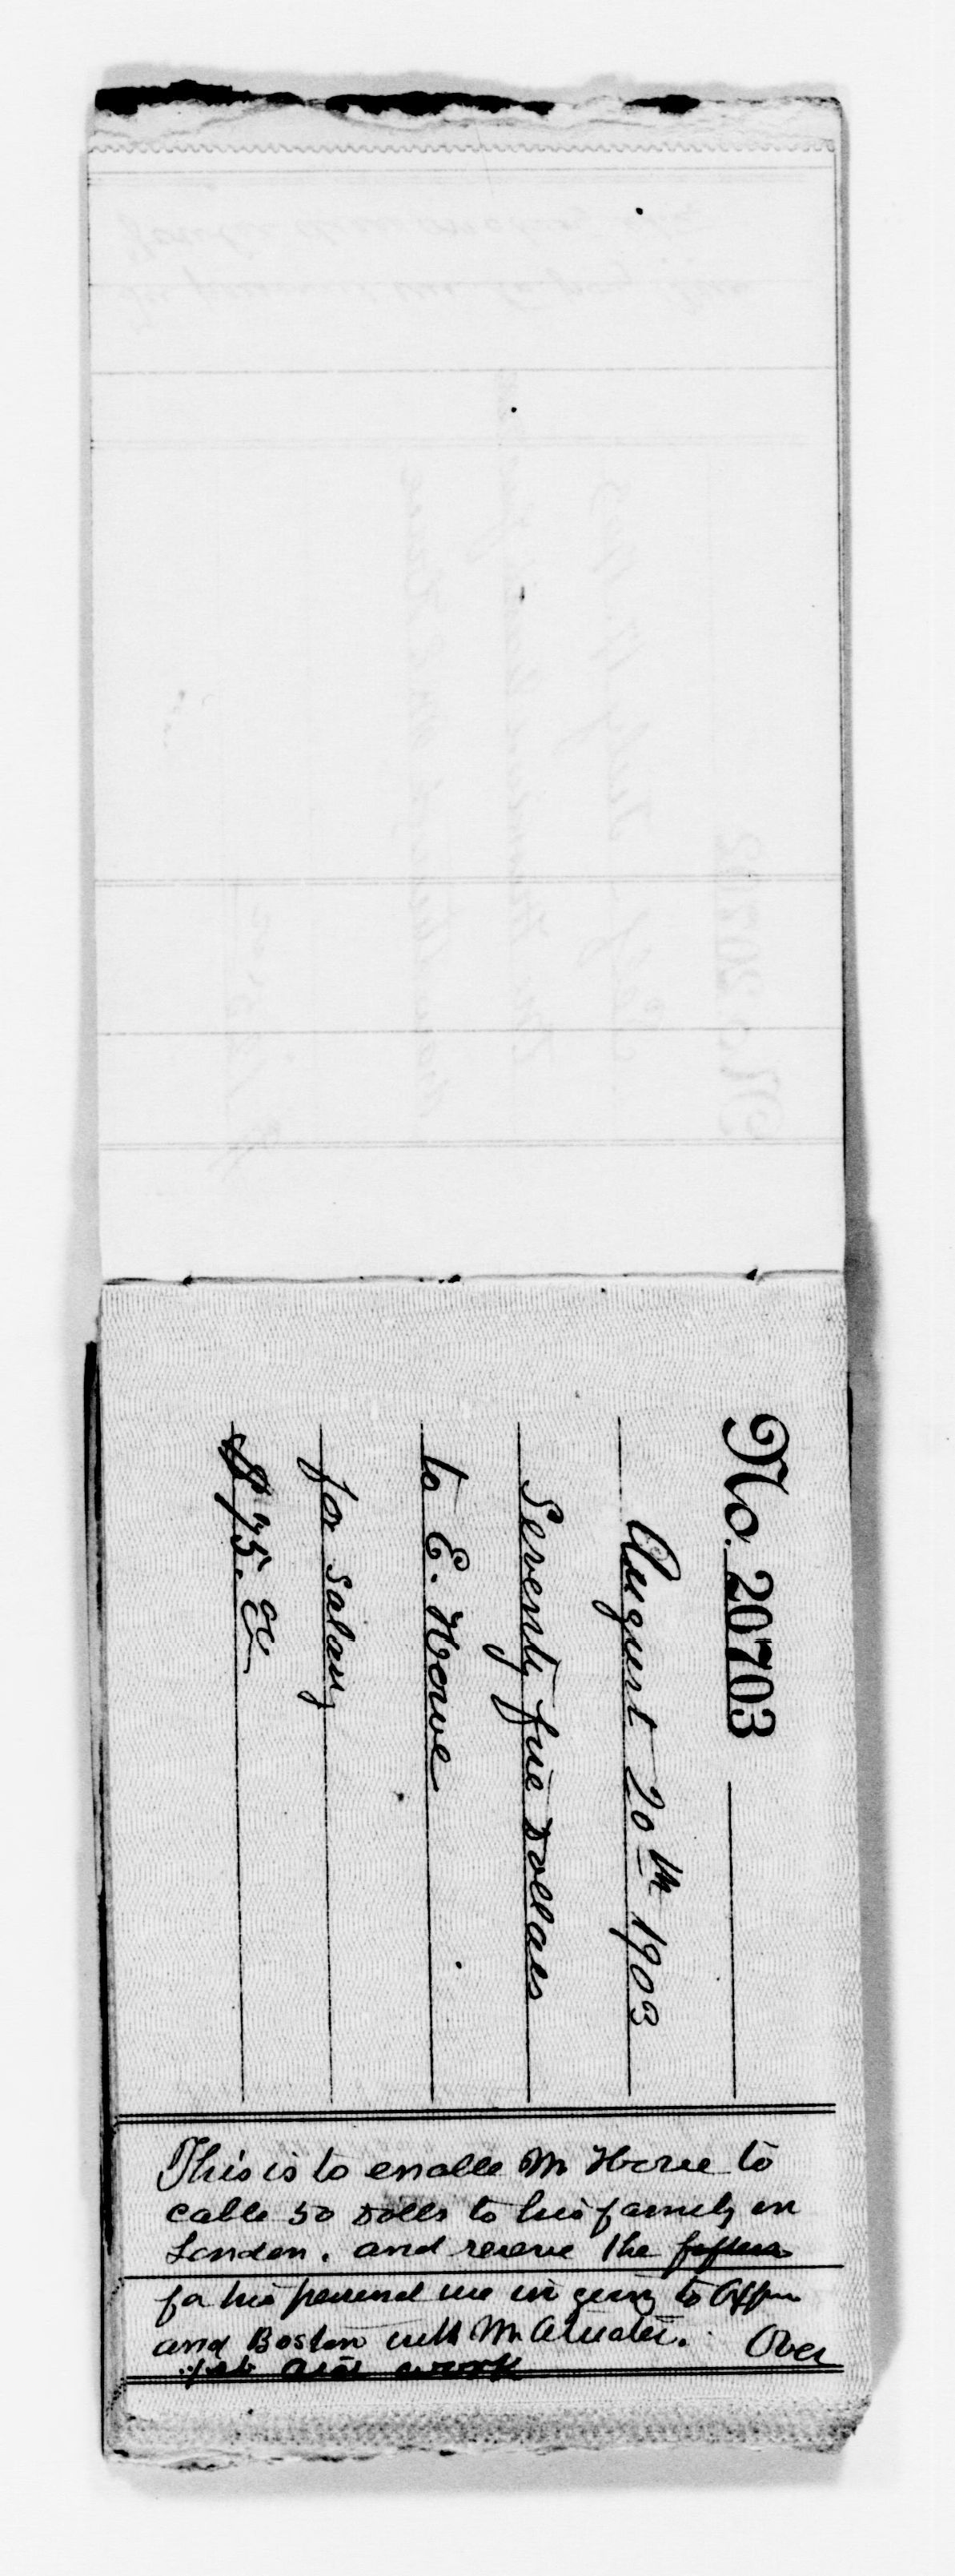 No. 20703
August 20th 1903
Seventy five Dollars
to E. Howe
for Salary
$75.00
This is to enable Mr Howe to
cable 50 Dolls to his family in
London. and reserve the
for his personal use in going to
and Boston with Mr Atwater. Over
first aid work